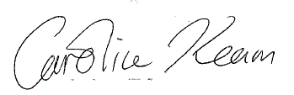 Caroline Kearn